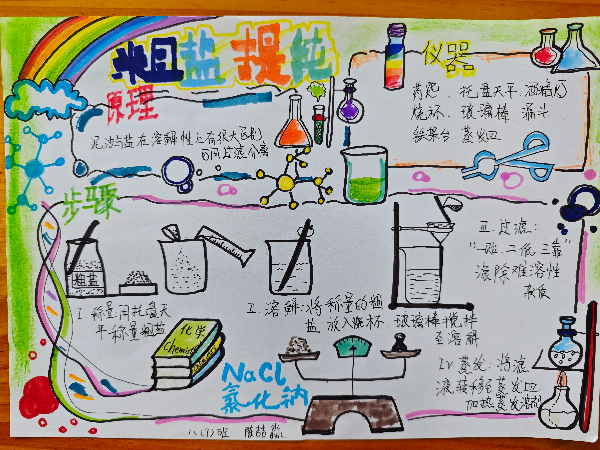 粗盐提纯
原理
泥沙与盐在溶解性上有很大区别
可用过滤分离
仪器
药匙、托盘天平、酒精灯
烧杯、玻璃棒 漏斗
铁架台 蒸发皿
步骤
粗盐
I. 称量:用托盘天
平称量粗盐
II. 溶解:将称量的粗
盐放入烧杯 玻璃棒搅拌
至溶解
III. 过滤:
"一贴 二低 三靠"
滤除难溶性
杂质
IV 蒸发:将滤
液转移至蒸发皿
加热蒸发溶剂
化学
Chemistry
NaCl
氯化钠
班